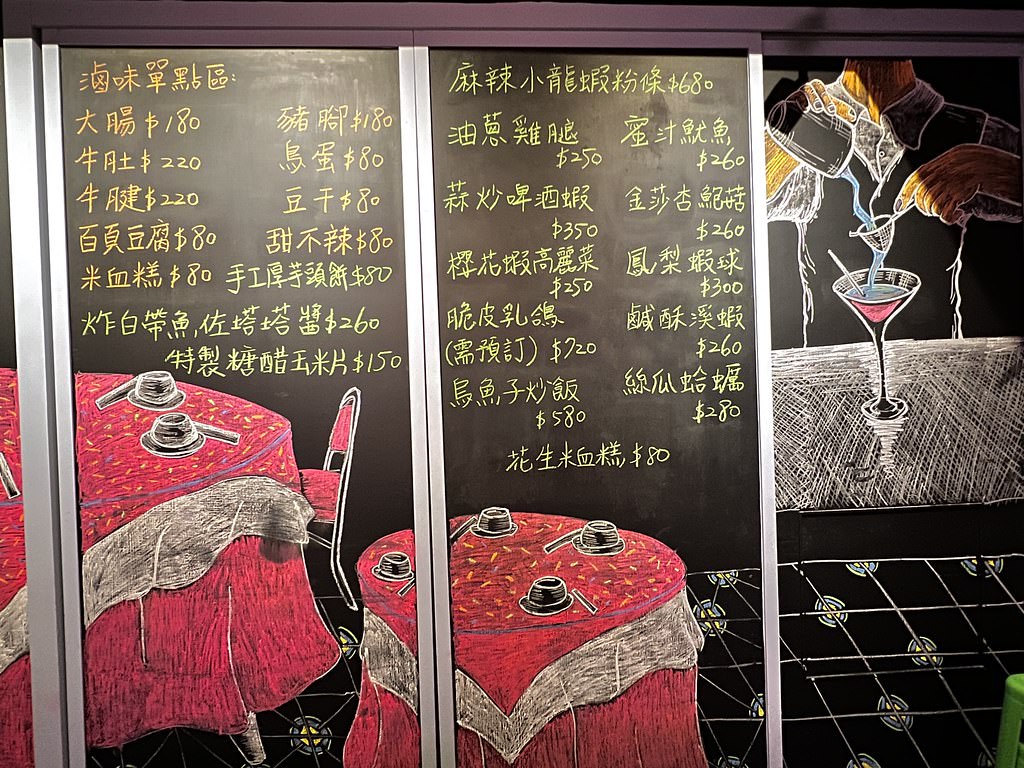 滷味單點區:
大腸 $180 豬腳 $180
牛肚 $220 鳥蛋 $80
牛腱 $220 豆干 $80
百頁豆腐 $80 甜不辣 $80
米血糕 $80 手工厚芋頭餅 $80
炸白帶魚,佐塔塔醬 $260
特製糖醋玉米片 $150
麻辣小龍蝦粉條 $680
油蔥雞腿 蜜汁魷魚
$250 $260
蒜炒啤酒蝦 金莎杏鮑菇
$350 $260
櫻花蝦高麗菜 鳳梨蝦球
$250 $300
脆皮乳鴿 鹹酥溪蝦
(需預訂) $720 $260
烏魚子炒飯 絲瓜蛤蠣
$580 $280
花生米血糕 $80